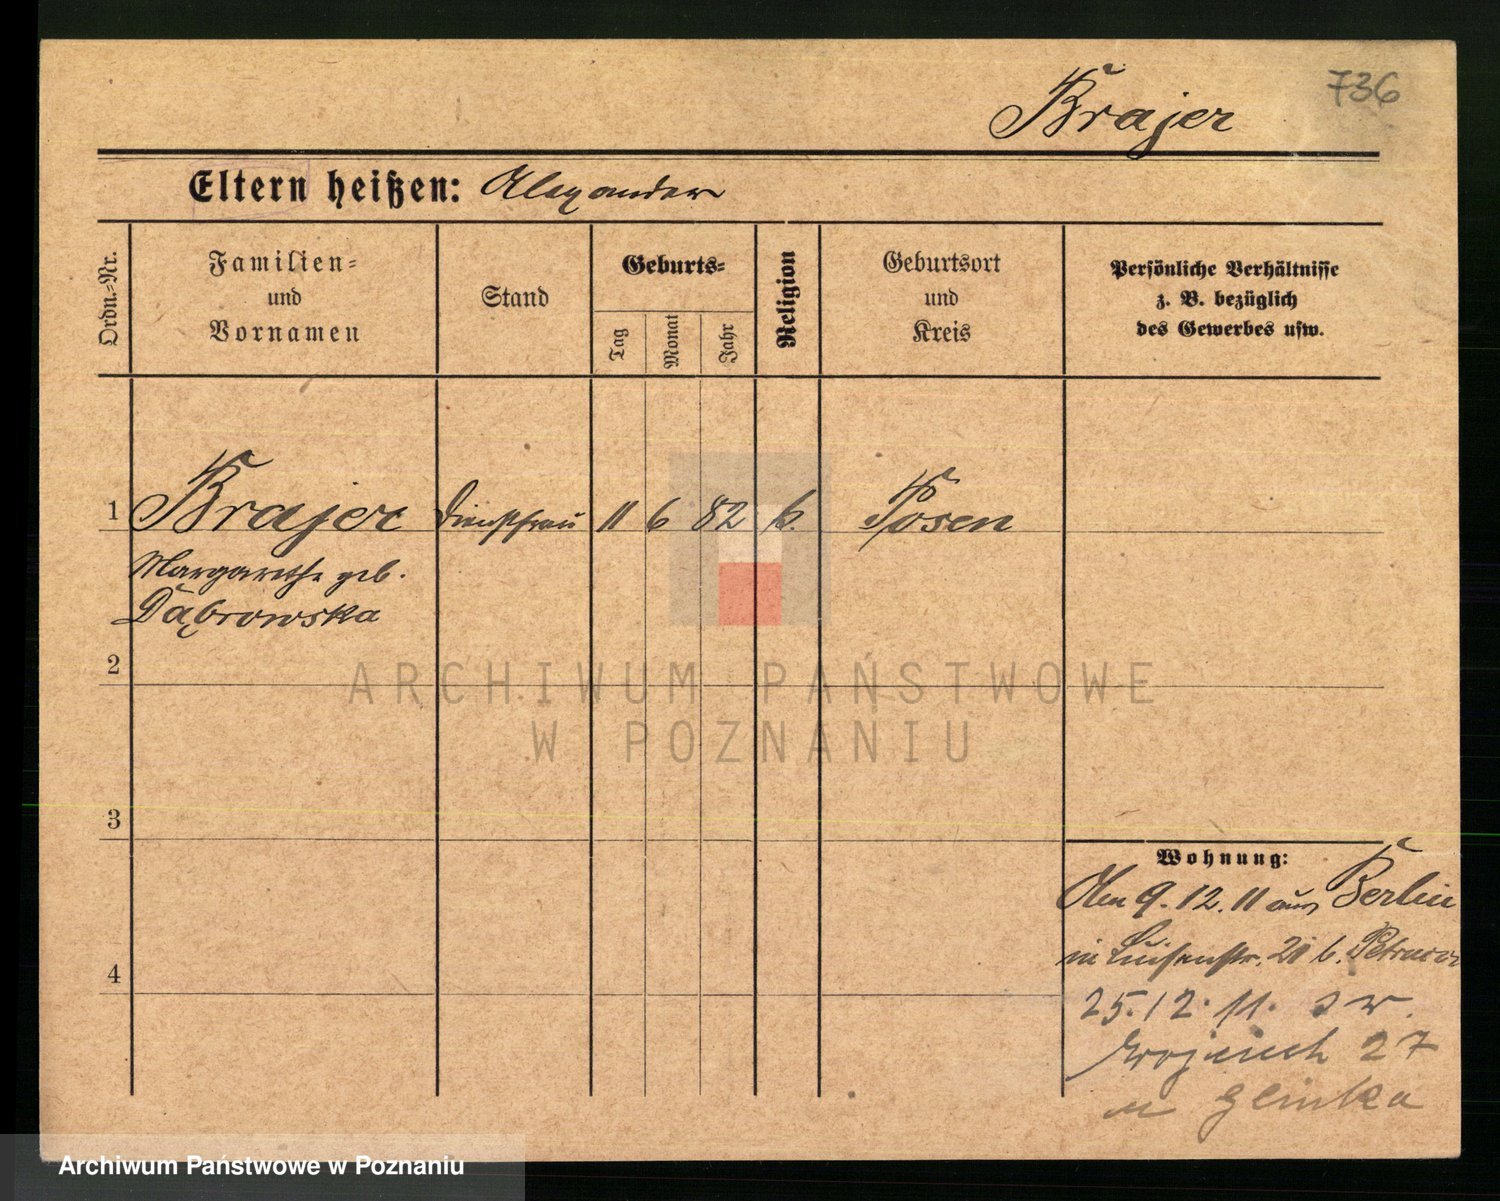 736
Brajer
Eltern heißen: Alexander
Ordn.=Nr.
Familien=
und
Vornamen
Stand
Geburts=
Tag
Monat
Jahr
Religion
Geburtsort
und
Kreis
Persönliche Verhältnisse
z. B. bezüglich
des Gewerbes usw.
1 Brajer Dienstfrau 11 6 82 k. Posen
Margarethe geb.
Dąbrowska
2
ARCHIWUM PAŃSTWOWE
W POZNANIU
3
Wohnung:
Am 9.12.11 aus Berlin
in Luisenstr. 21 b.
4
25.12.11.
27
Glinka
Archiwum Państwowe w Poznaniu